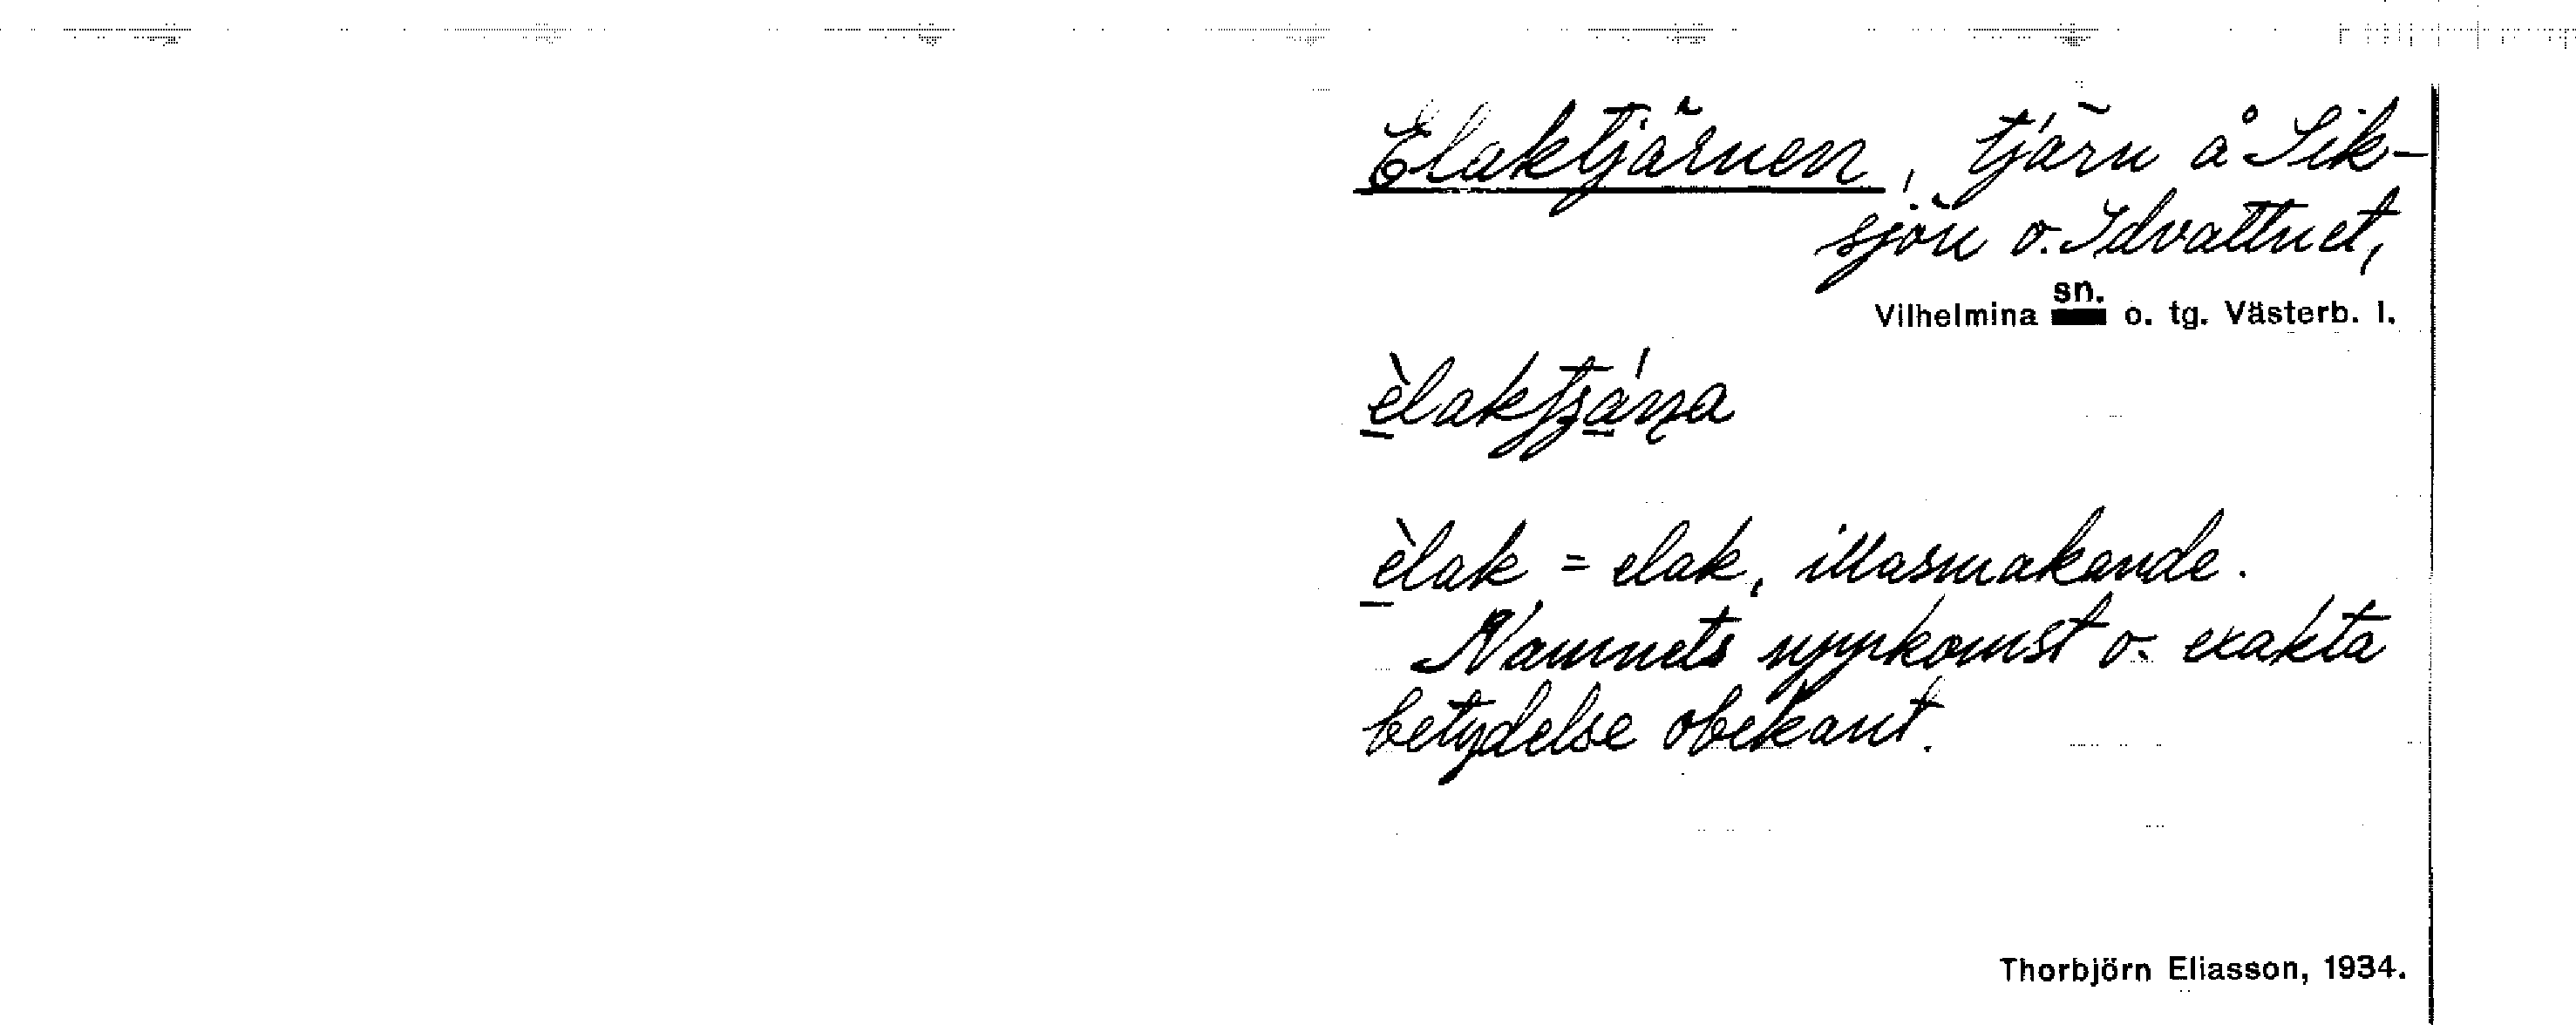 Elaktjärnen, tjärn å Sik-
sjön o. Idvattnet,
Vilhelmina sn. o. tg. Västerb. l.
èlak = elak, illasmakande.
Namnets uppkomst o. exakta
betydelse obekant.
Thorbjörn Eliasson, 1934.